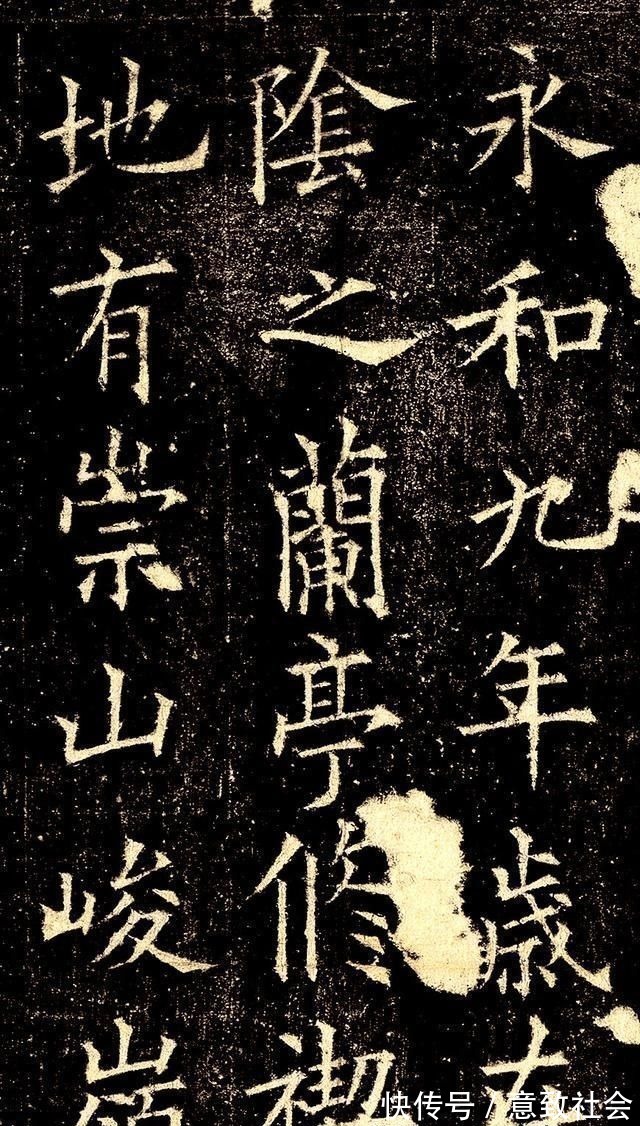 永和九年歲在
陰之蘭亭修禊
地有崇山峻嶺
快传号/意致社会